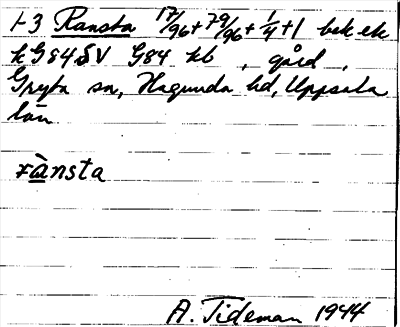 1-3 Ransta 17/96+79/96+1/4+1 bek ek
kGS4SV G84 kb, gård,
Gryta sn, Hagunda hd, Uppsala
län
rànsta
A. Tideman 1944